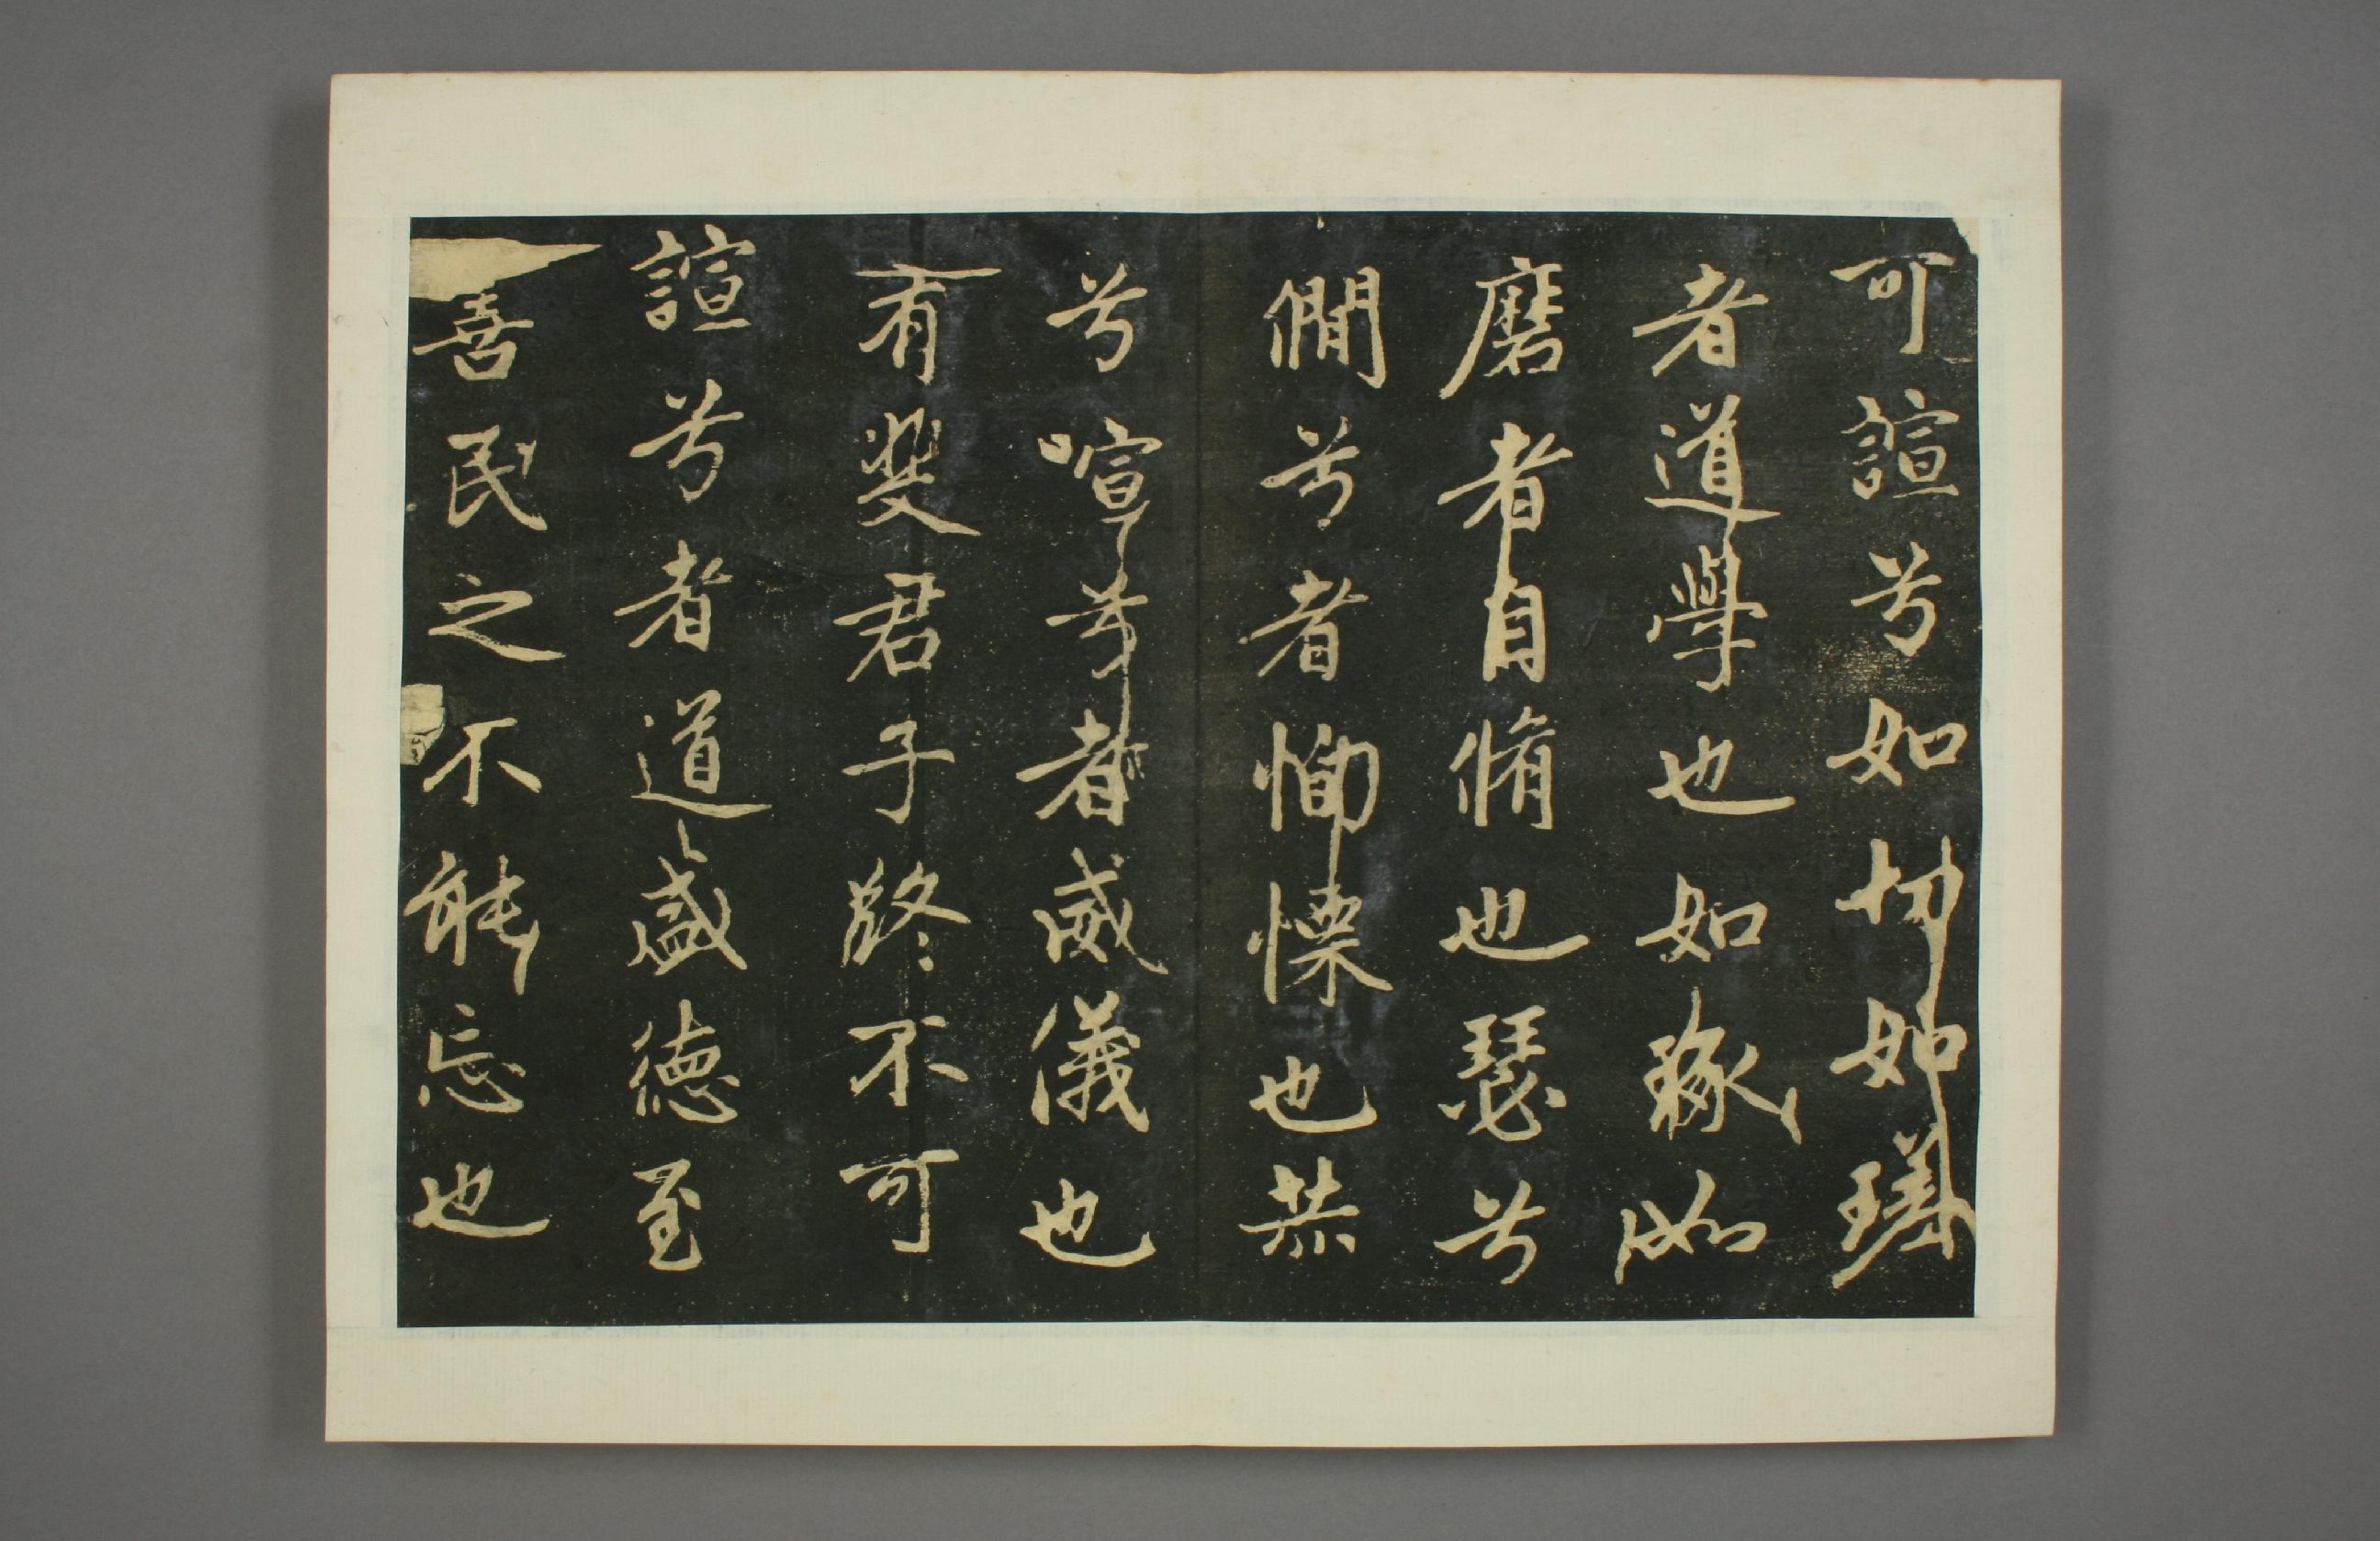 可諠兮如切如磋
者道學也如琢如
磨者自脩也瑟兮
僩兮者恂慄也赫
兮喧兮者威儀也
有斐君子終不可
諠兮者道盛德至
善民之不能忘也